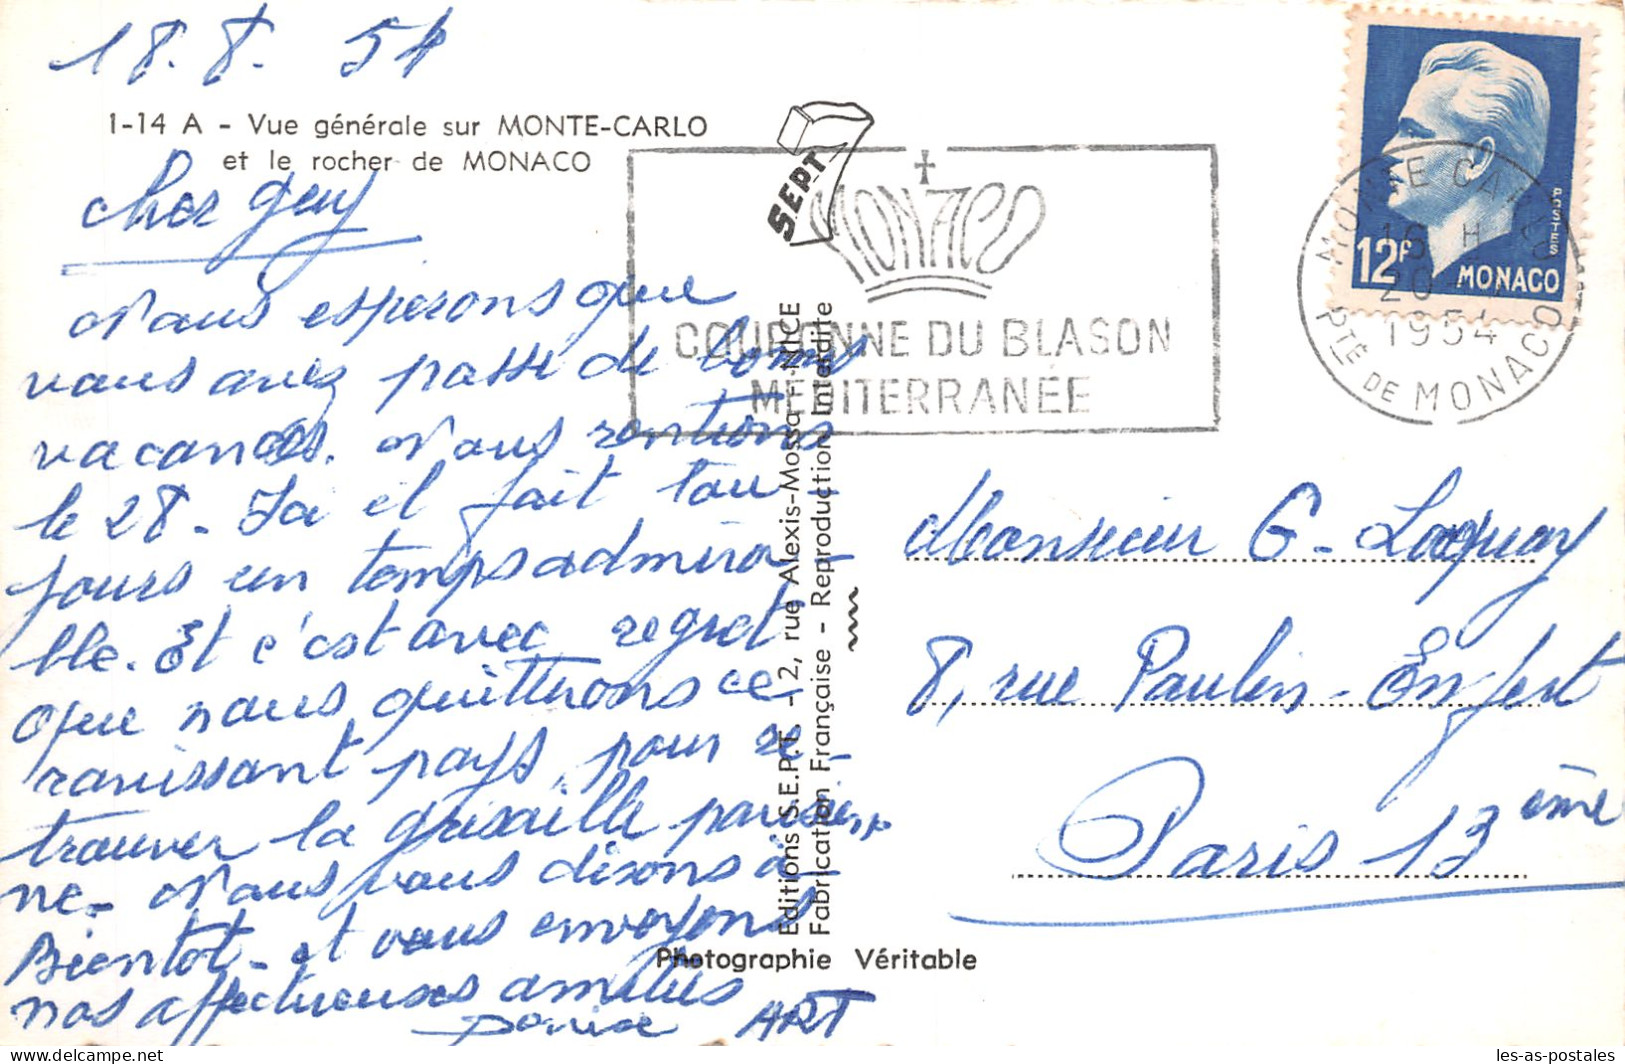 18.8.54
1-14 A - Vue générale sur MONTE-CARLO
et le rocher de MONACO
Cher Guy
Nous esperons que
vous avez passe de bonnes
vacances. Nous rentrons
le 28 - Ici il fait tou-
jours un temps admira-
ble. Et c'est avec regret
que nous quitterons ce
ravissant pays, pour re-
trouver la grisaille parisien
ne - Nous vous disons à
Bientot - et vous envoyons
nos affectueuses amitiés
Denise ART
SEPT
7
MONACO
COURONNE DU BLASON
MÉDITERRANÉE
POSTES
12F MONACO
MONTE-CARLO
16 H
20
1954
PTÉ DE MONACO
Editions S.E.P.T. - 12, rue Alexis-Mossa - NICE
Fabrication Française - Reproduction Interdite
Photographie Véritable
Monsieur G. Laquay
8, rue Paulin-Enfert
Paris 13ème
les-as-postales
delcampe.net